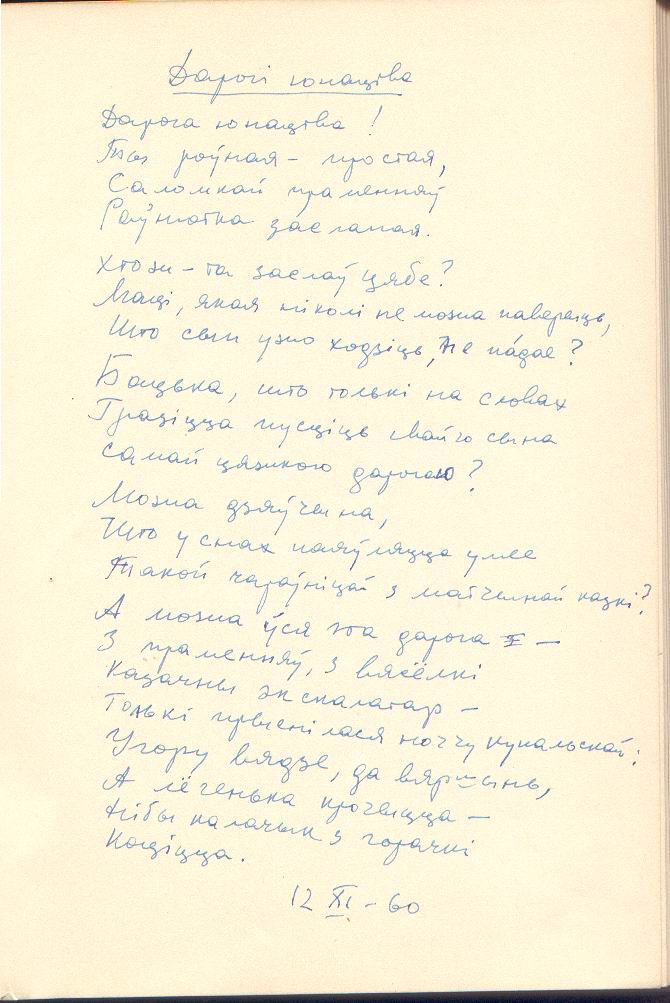 Дарогі юнацтва
Дарога юнацтва!
Ты роўная – простая,
Саломкай праменняў
Раўнютка засланая.
Хто ж – та заслаў цябе?
Маці, якая ніколі не можа паверыць,
Што сын ужо ходзіць, не падае?
Бацька, што толькі на словах
Грозіцца пусціць свайго сына
Самай цяжкою дарогаю?
Можа дзяўчына,
Што у снах паяўляцца умее
Такой чараўніцай з матчынай казкі?
А можа ўся эта дарога –
З праменняў, з вясёлкі
Казачны экскалатар –
Толькі прыснілася ноччу купальскай:
Угору вядзе, да вяршынь,
А лёгенька крочыцца –
Нібы калачык з горачкі
Коціцца.
12 XI – 60